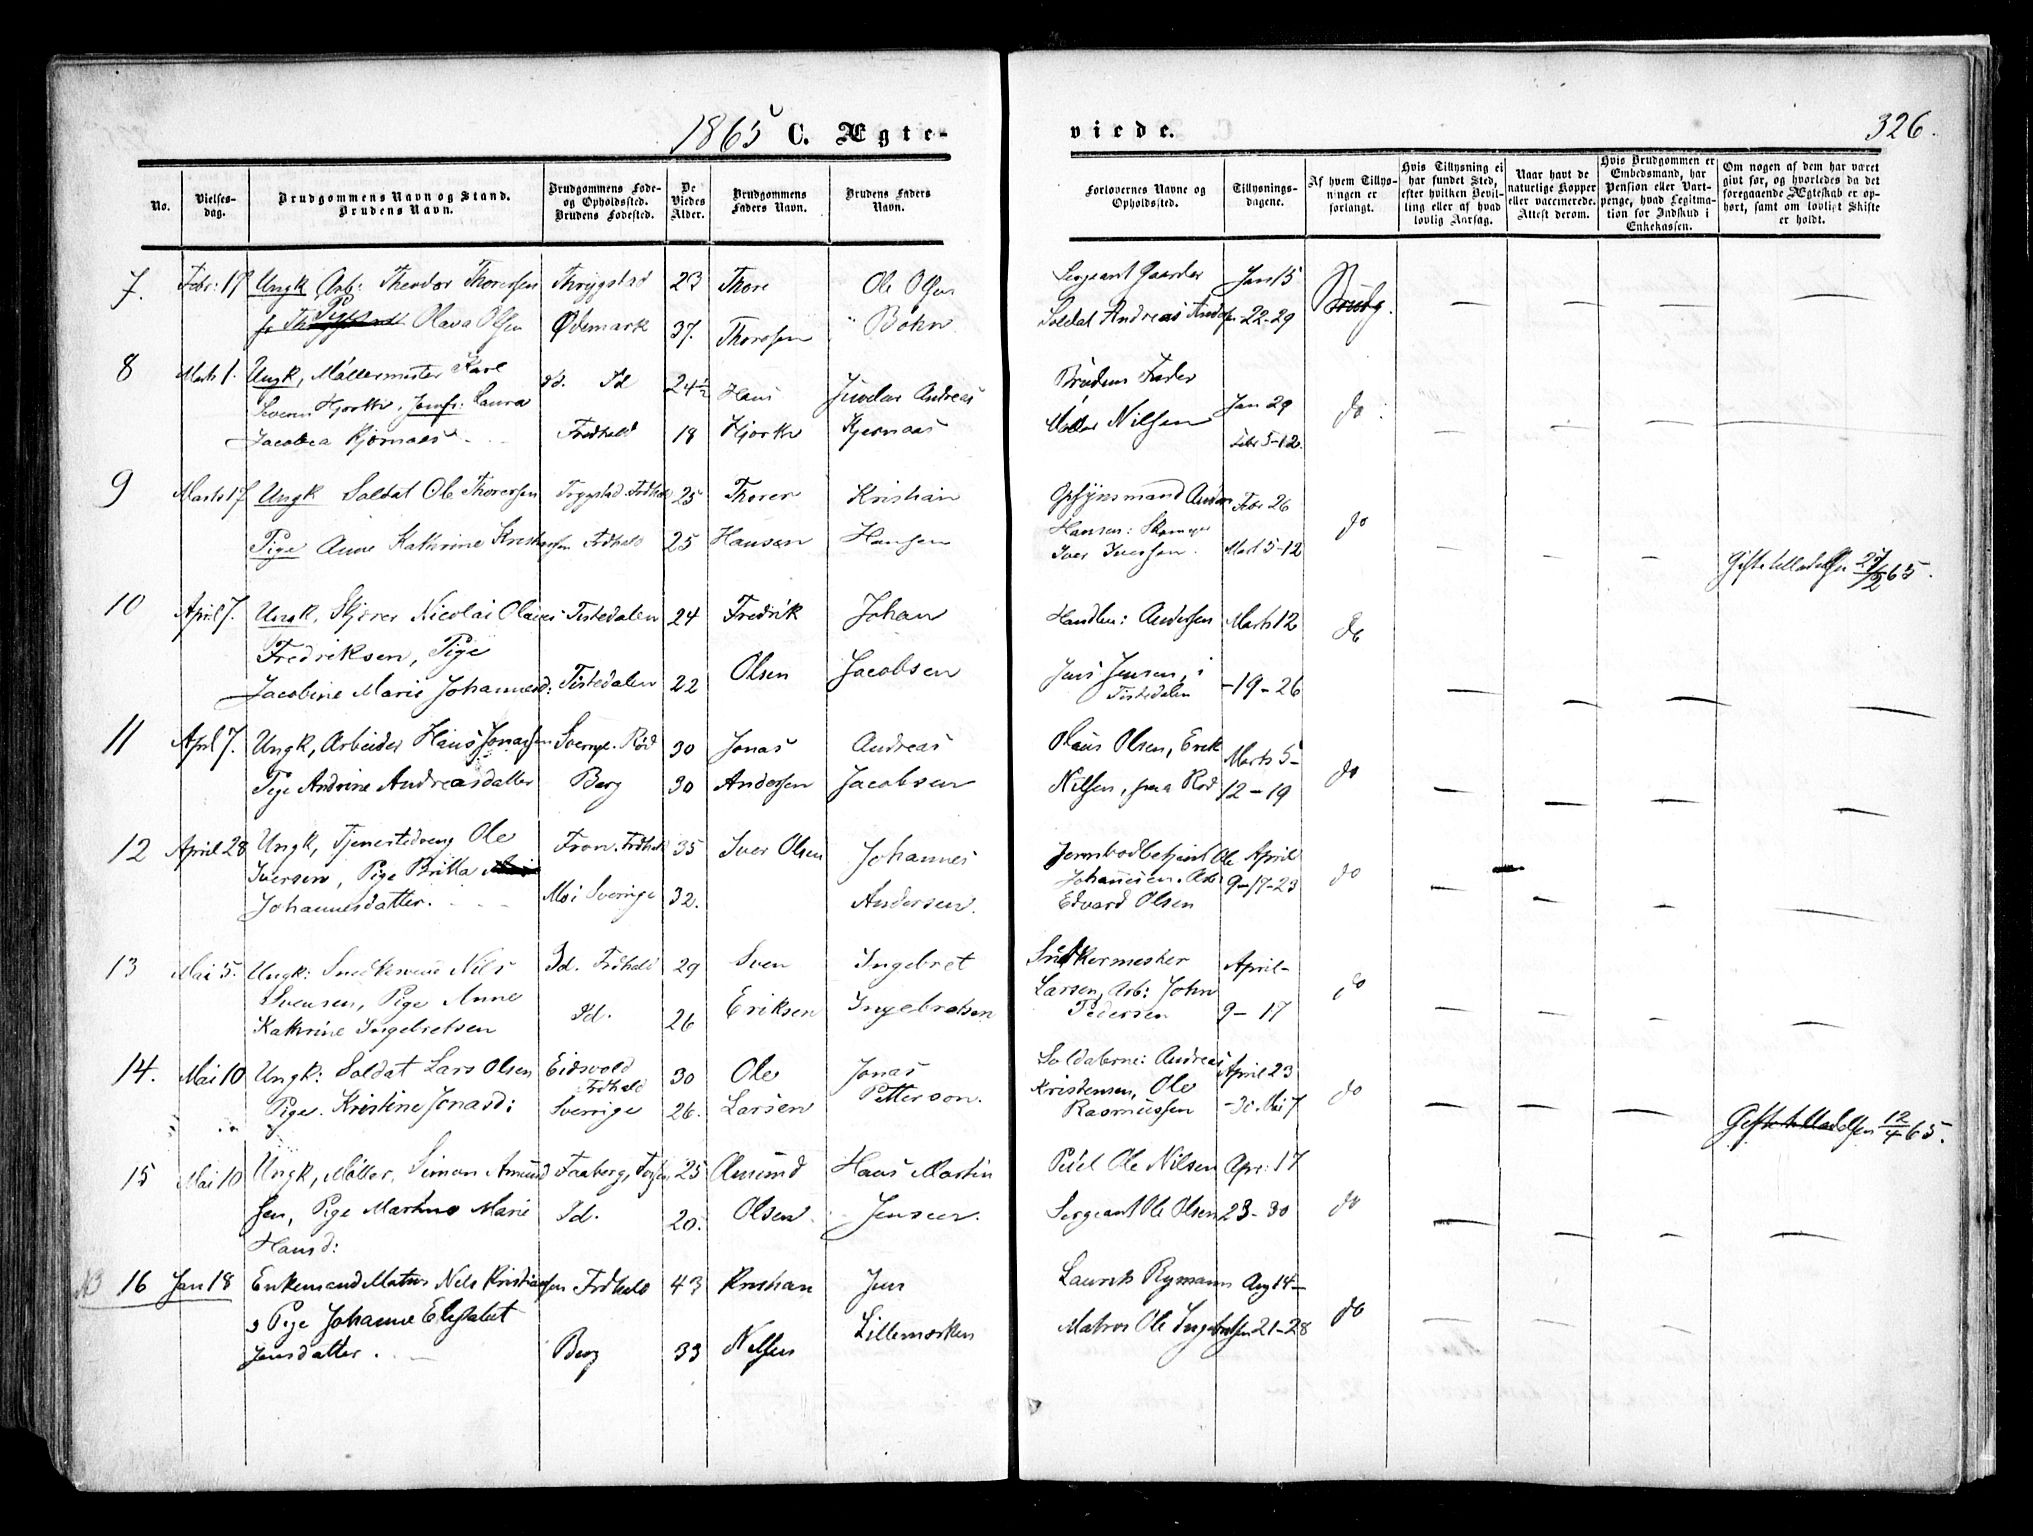 1865 C. Ægte-
viede.
326.
No.
Vielses-
dag.
Brudgommens Navn og Stand.
Brudens Navn.
Brudgommens Føde-
og Opholdssted.
Brudens Fødested.
De
Viedes
Alder.
Brudgommens
Faders Navn.
Brudens Faders
Navn.
Forlovernes Navne og
Opholdssted.
Tillysnings-
dagene.
Af hvem Tillys-
ningen er
forlangt.
Hvis Tillysning ei
har fundet Sted,
efter hvilken Bevil-
ling eller af hvad
lovlig Aarsag.
Naar havt de
naturlige Kopper
eller vaccinerede.
Attest derom.
Hvis Brudgommen er
Embedsmand, har
Pension eller Vart-
penge, hvad Legitima-
tion for Indskud i
Enkekassen.
Om nogen af dem har været
gift før, og hvorledes da det
foregaaende Ægteskab er op-
hørt, samt om lovligt Skifte
er holdt.
7. Febr: 19 Ungk Arb: Theodor Thoresen Thrygstad 23 Thore Ole Olsen Sergeant Gaarder Jan 15 Brudg.
Pige Olava Olsen Ødemark 37. Thoresen Bohn Soldat Andreas -22-29
8 Marts 1. Ungk, Møllermester Karl Id. Id 24½ Hans Andreas Brudens Fader Jan 29 do
Severin Hjorth, Jomfr: Laura
Jacobea Kjernaas Fredhald 18 Hjorth Kjernaas Møller Nilsen Febr 5-12.
9 Marts 17 Ungk Soldat Ole Thoresen Trygstad Frdhald 25 Thorer Kristian Opsynsmand Febr 26 do
Pige Anne Kathrine Frdhald 25 Hansen Hansen Hansen:
Iver Iversen. Marts 5-12
10 April 7. Ungk, Skjærer Nicolai Olaus Tistedalen 24 Fredrik Johan Handlen: Andersen Marts 12 do
Fredriksen, Pige
Jacobine Marie Johannesd: Tistedalen 22 Olsen Jacobsen Jens Jensen, i
Tistedalen -19-26
11 April 7. Ungk, Arbeider Hans Jonassen Rød 30 Jonas Andreas Olaus Olsen, Erik Marts 5- do
Pige Andrine Andreasdatter Berg 30 Andersen Jacobsen Nilsen, fra Rød 12-19
12 April 28 Ungk, Tjenestedreng Ole Fron. Frdhald 35 Iver Olsen Johannes Ole April do
Iversen, Pige Britta Johannesen. Arb: 9-17-23
Johannesdatter. Mo i Sverrige 32. Andersen. Edvard Olsen
13 Mai 5. Ungk: Snedkersvend Nils Id. Frdhald 29 Sven Ingebret Snedkermester April- do
Svensen, Pige Anne Larsen, Arb: John
Kathrine Ingebretsen Id. 26 Eriksen Ingebretsen Pedersen 9-17
14. Mai 10 Ungk: Soldat Lars Olsen Eidsvold
Frdhald 30 Ole Jonas Soldaterne: Andreas April 23 do
Pige. Kristine Jonasd: Sverrige 26. Larsen Petterson. Kristensen, Ole
Rasmussen -30 Mai 7
15 Mai 10 Ungk, Møller, Simon Amund Faaberg, 25 Amund Hans Martin Ole Nilsen Apr: 17 do
sen, Pige Marthe Marie Id. 20. Olsen Jensen. Sergeant Ole Olsen 23-30
Hansd:
16 Jan 18 Enkemand Matros Nils Kristiansen Frdhald 43 Kristian Jens Laurits Rymann Aug 14- do
Pige Johanne Elisabet Lillemarken Matros Ole Ingebretsen 21-28
Jensdatter. Berg 33 Nilsen